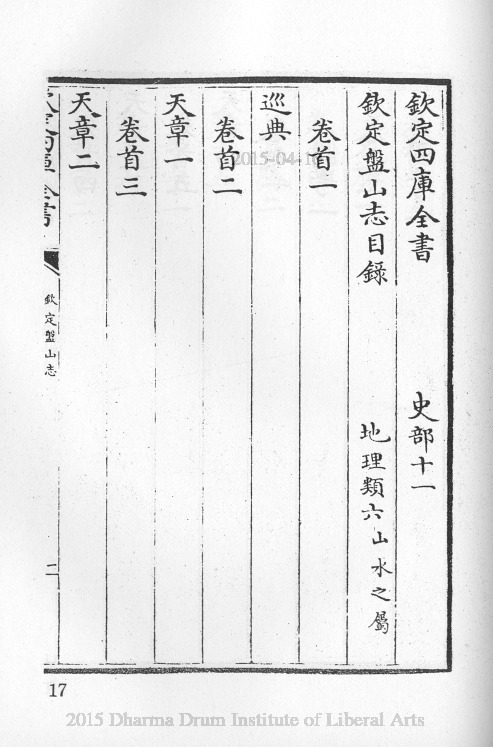 欽定四庫全書　史部十一
欽定盤山志目錄　地理類六山水之屬
卷首一
巡典
卷首二
天章一
卷首三
天章二
欽定四庫全書
欽定盤山志
二
17
2015-04-1
2015 Dharma Drum Institute of Liberal Arts